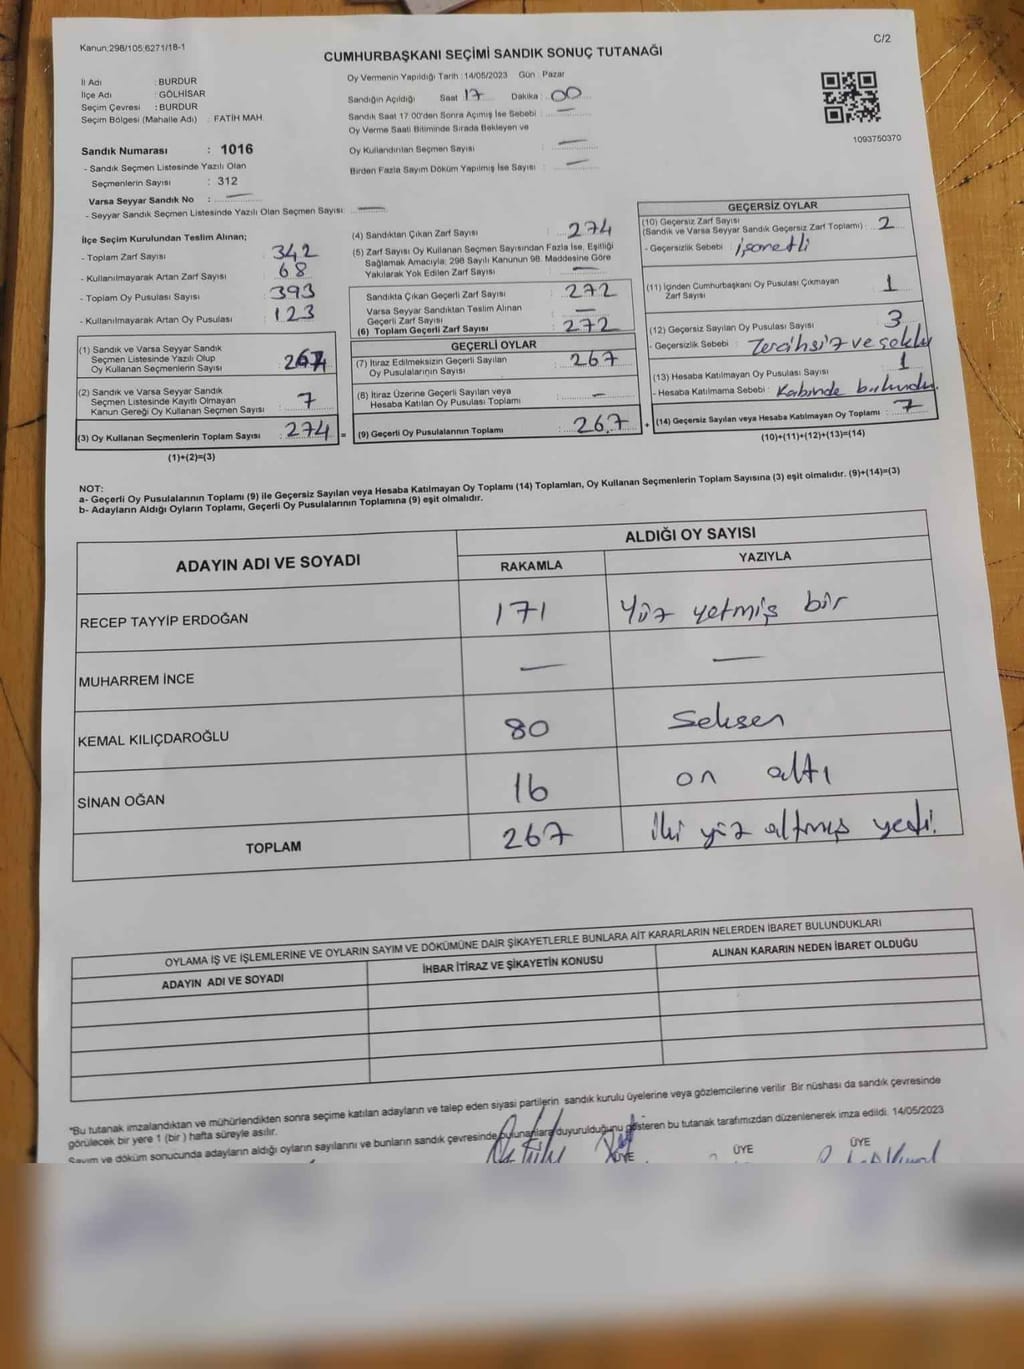 Kanun;298/105;6271/18-1
C/2
CUMHURBAŞKANI SEÇİMİ SANDIK SONUÇ TUTANAĞI
İl Adı : BURDUR
İlçe Adı : GÖLHİSAR
Seçim Çevresi : BURDUR
Seçim Bölgesi (Mahalle Adı) : FATİH MAH.
Sandık Numarası : 1016
- Sandık Seçmen Listesinde Yazılı Olan
Seçmenlerin Sayısı : 312
Varsa Seyyar Sandık No : —
- Seyyar Sandık Seçmen Listesinde Yazılı Olan Seçmen Sayısı: —
Oy Vermenin Yapıldığı Tarih : 14/05/2023 Gün : Pazar
Sandığın Açıldığı Saat 17 Dakika : 00
Sandık Saat 17:00'den Sonra Açımış İse Sebebi : —
Oy Verme Saati Bitiminde Sırada Bekleyen ve
Oy Kullandırılan Seçmen Sayısı : —
Birden Fazla Sayım Döküm Yapılmış İse Sayısı : —
1093750370
İlçe Seçim Kurulundan Teslim Alınan;
- Toplam Zarf Sayısı : 342
- Kullanılmayarak Artan Zarf Sayısı : 68
- Toplam Oy Pusulası Sayısı : 393
- Kullanılmayarak Artan Oy Pusulası : 123
(1) Sandık ve Varsa Seyyar Sandık
Seçmen Listesinde Yazılı Olup
Oy Kullanan Seçmenlerin Sayısı : 267
(2) Sandık ve Varsa Seyyar Sandık
Seçmen Listesinde Kayıtlı Olmayan
Kanun Gereği Oy Kullanan Seçmen Sayısı : 7
(3) Oy Kullanan Seçmenlerin Toplam Sayısı : 274 =
(1)+(2)=(3)
(4) Sandıktan Çıkan Zarf Sayısı : 274
(5) Zarf Sayısı Oy Kullanan Seçmen Sayısından Fazla İse, Eşitliği
Sağlamak Amacıyla; 298 Sayılı Kanunun 98. Maddesine Göre
Yakılarak Yok Edilen Zarf Sayısı : —
Sandıkta Çıkan Geçerli Zarf Sayısı : 272
Varsa Seyyar Sandıktan Teslim Alınan
Geçerli Zarf Sayısı : —
(6) Toplam Geçerli Zarf Sayısı : 272
GEÇERLİ OYLAR
(7) İtiraz Edilmeksizin Geçerli Sayılan
Oy Pusulalarının Sayısı : 267
(8) İtiraz Üzerine Geçerli Sayılan veya
Hesaba Katılan Oy Pusulası Toplamı : —
(9) Geçerli Oy Pusulalarının Toplamı : 267 +
GEÇERSİZ OYLAR
(10) Geçersiz Zarf Sayısı
(Sandık ve Varsa Seyyar Sandık Geçersiz Zarf Toplamı) : 2
- Geçersizlik Sebebi : işaretli
(11) İçinden Cumhurbaşkanı Oy Pusulası Çıkmayan
Zarf Sayısı : 1
(12) Geçersiz Sayılan Oy Pusulası Sayısı : 3
- Geçersizlik Sebebi : Tercihsiz ve
(13) Hesaba Katılmayan Oy Pusulası Sayısı : 1
- Hesaba Katılmama Sebebi : Kabinde bulundu.
(14) Geçersiz Sayılan veya Hesaba Katılmayan Oy Toplamı : 7
(10)+(11)+(12)+(13)=(14)
NOT:
a- Geçerli Oy Pusulalarının Toplamı (9) ile Geçersiz Sayılan veya Hesaba Katılmayan Oy Toplamı (14) Toplamları, Oy Kullanan Seçmenlerin Toplam Sayısına (3) eşit olmalıdır. (9)+(14)=(3)
b- Adayların Aldığı Oyların Toplamı, Geçerli Oy Pusulalarının Toplamına (9) eşit olmalıdır.
ADAYIN ADI VE SOYADI
ALDIĞI OY SAYISI
RAKAMLA YAZIYLA
RECEP TAYYİP ERDOĞAN 171 Yüz yetmiş bir
MUHARREM İNCE — —
KEMAL KILIÇDAROĞLU 80 Seksen
SİNAN OĞAN 16 on altı
TOPLAM 267 iki yüz altmış yedi.
OYLAMA İŞ VE İŞLEMLERİNE VE OYLARIN SAYIM VE DÖKÜMÜNE DAİR ŞİKAYETLERLE BUNLARA AİT KARARLARIN NELERDEN İBARET BULUNDUKLARI
ADAYIN ADI VE SOYADI İHBAR İTİRAZ VE ŞİKAYETİN KONUSU ALINAN KARARIN NEDEN İBARET OLDUĞU
"Bu tutanak imzalandıktan ve mühürlendikten sonra seçime katılan adayların ve talep eden siyasi partilerin sandık kurulu üyelerine veya gözlemcilerine verilir Bir nüshası da sandık çevresinde
görülecek bir yere 1 (bir ) hafta süreyle asılır.
Sayım ve döküm sonucunda adayların aldığı oyların sayılarını ve bunların sandık çevresinde bulunanlara duyurulduğunu gösteren bu tutanak tarafımızdan düzenlenerek imza edildi. 14/05/2023
ÜYE ÜYE ÜYE